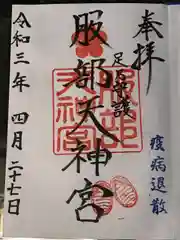 奉拝
足の守護
疫病退散
服部天神宮
令和三年四月二十七日